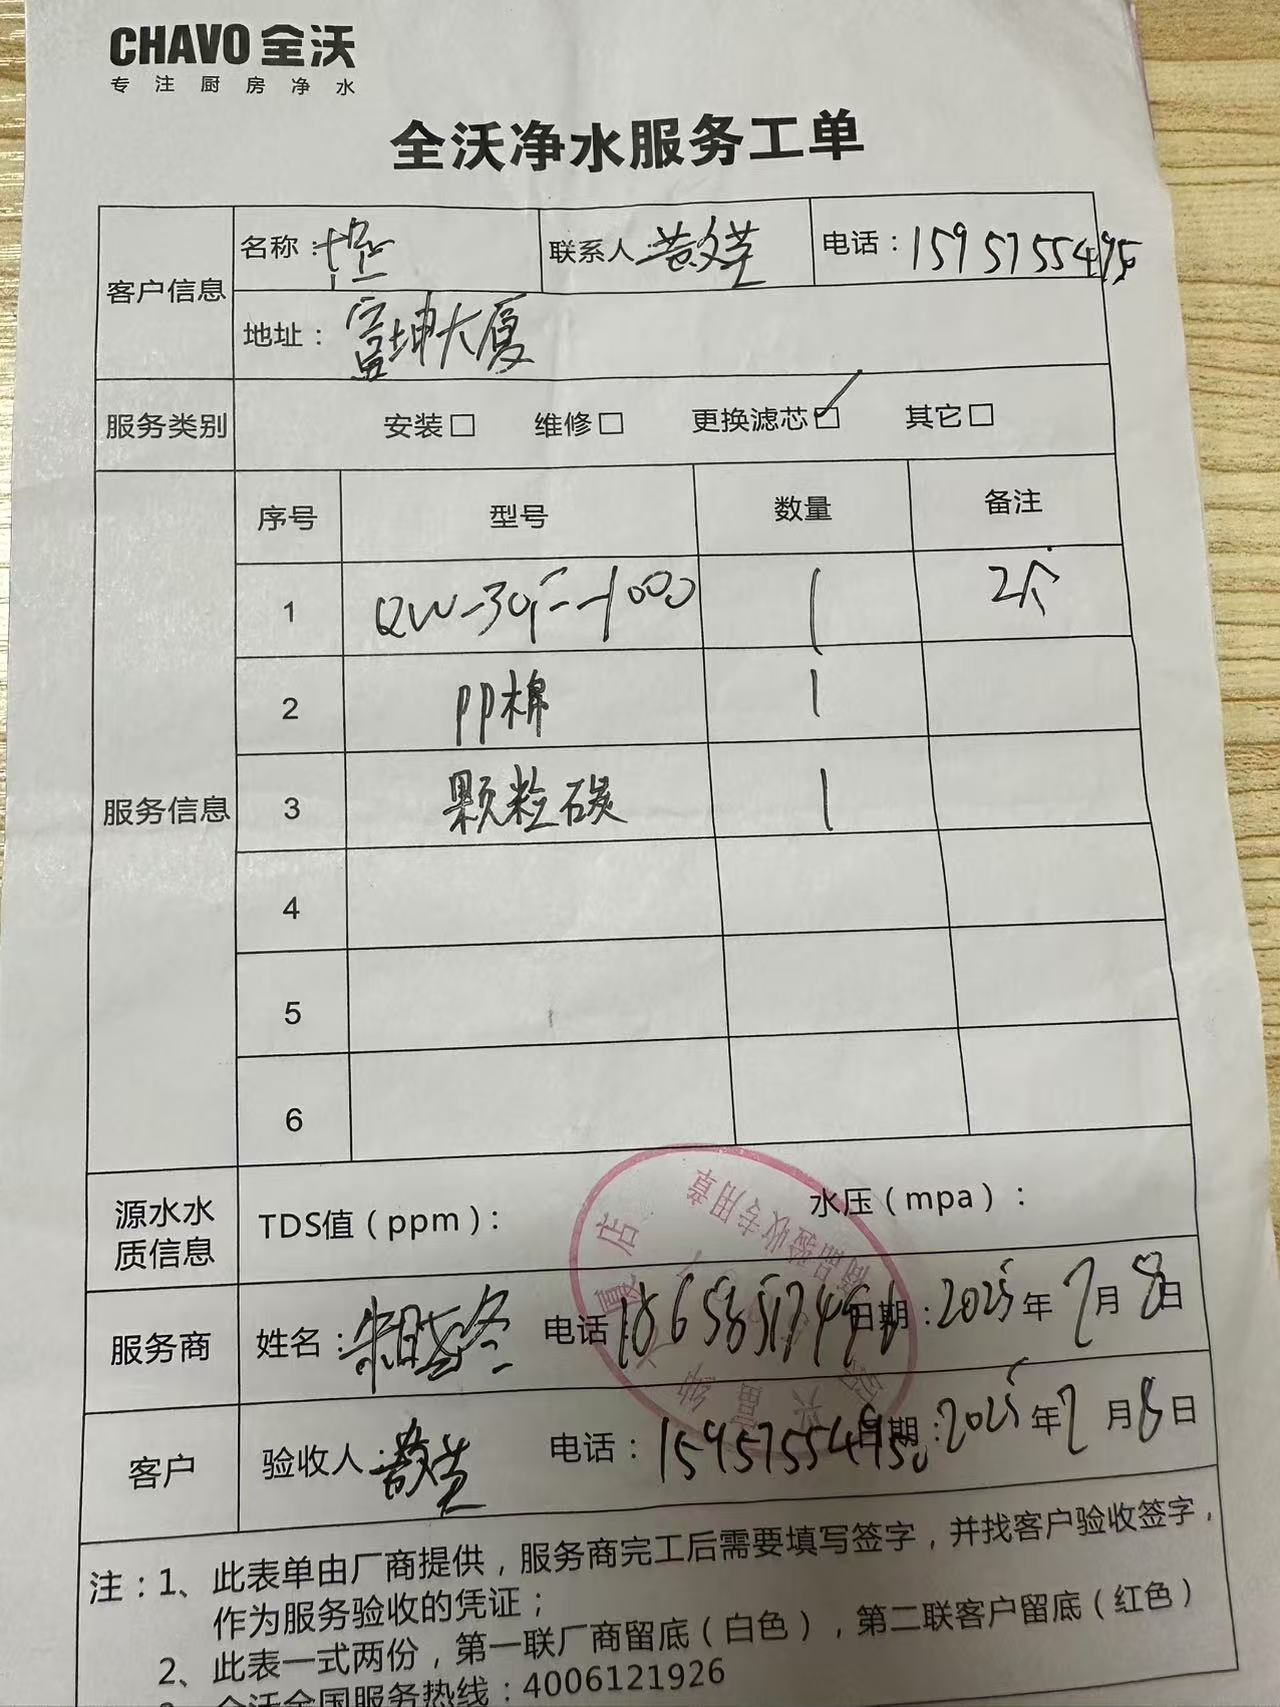 CHAVO 全沃
专注厨房净水
全沃净水服务工单
客户信息
名称：
联系人：黄文萍
电话：15957554950
地址：富坤大厦
服务类别
安装□ 维修□ 更换滤芯☑ 其它□
服务信息
序号 型号 数量 备注
1 1 2个
2 PP棉 1
3 颗粒碳 1
4
5
6
源水水质信息
TDS值（ppm）：
水压（mpa）：
服务商
姓名：
电话：
日期：2025年7月8日
客户
验收人：
电话：15957554950
日期：2025年7月8日
注：1、此表单由厂商提供，服务商完工后需要填写签字，并找客户验收签字，
作为服务验收的凭证；
2、此表一式两份，第一联厂商留底（白色），第二联客户留底（红色）
全沃全国服务热线：4006121926
商品验收专用章